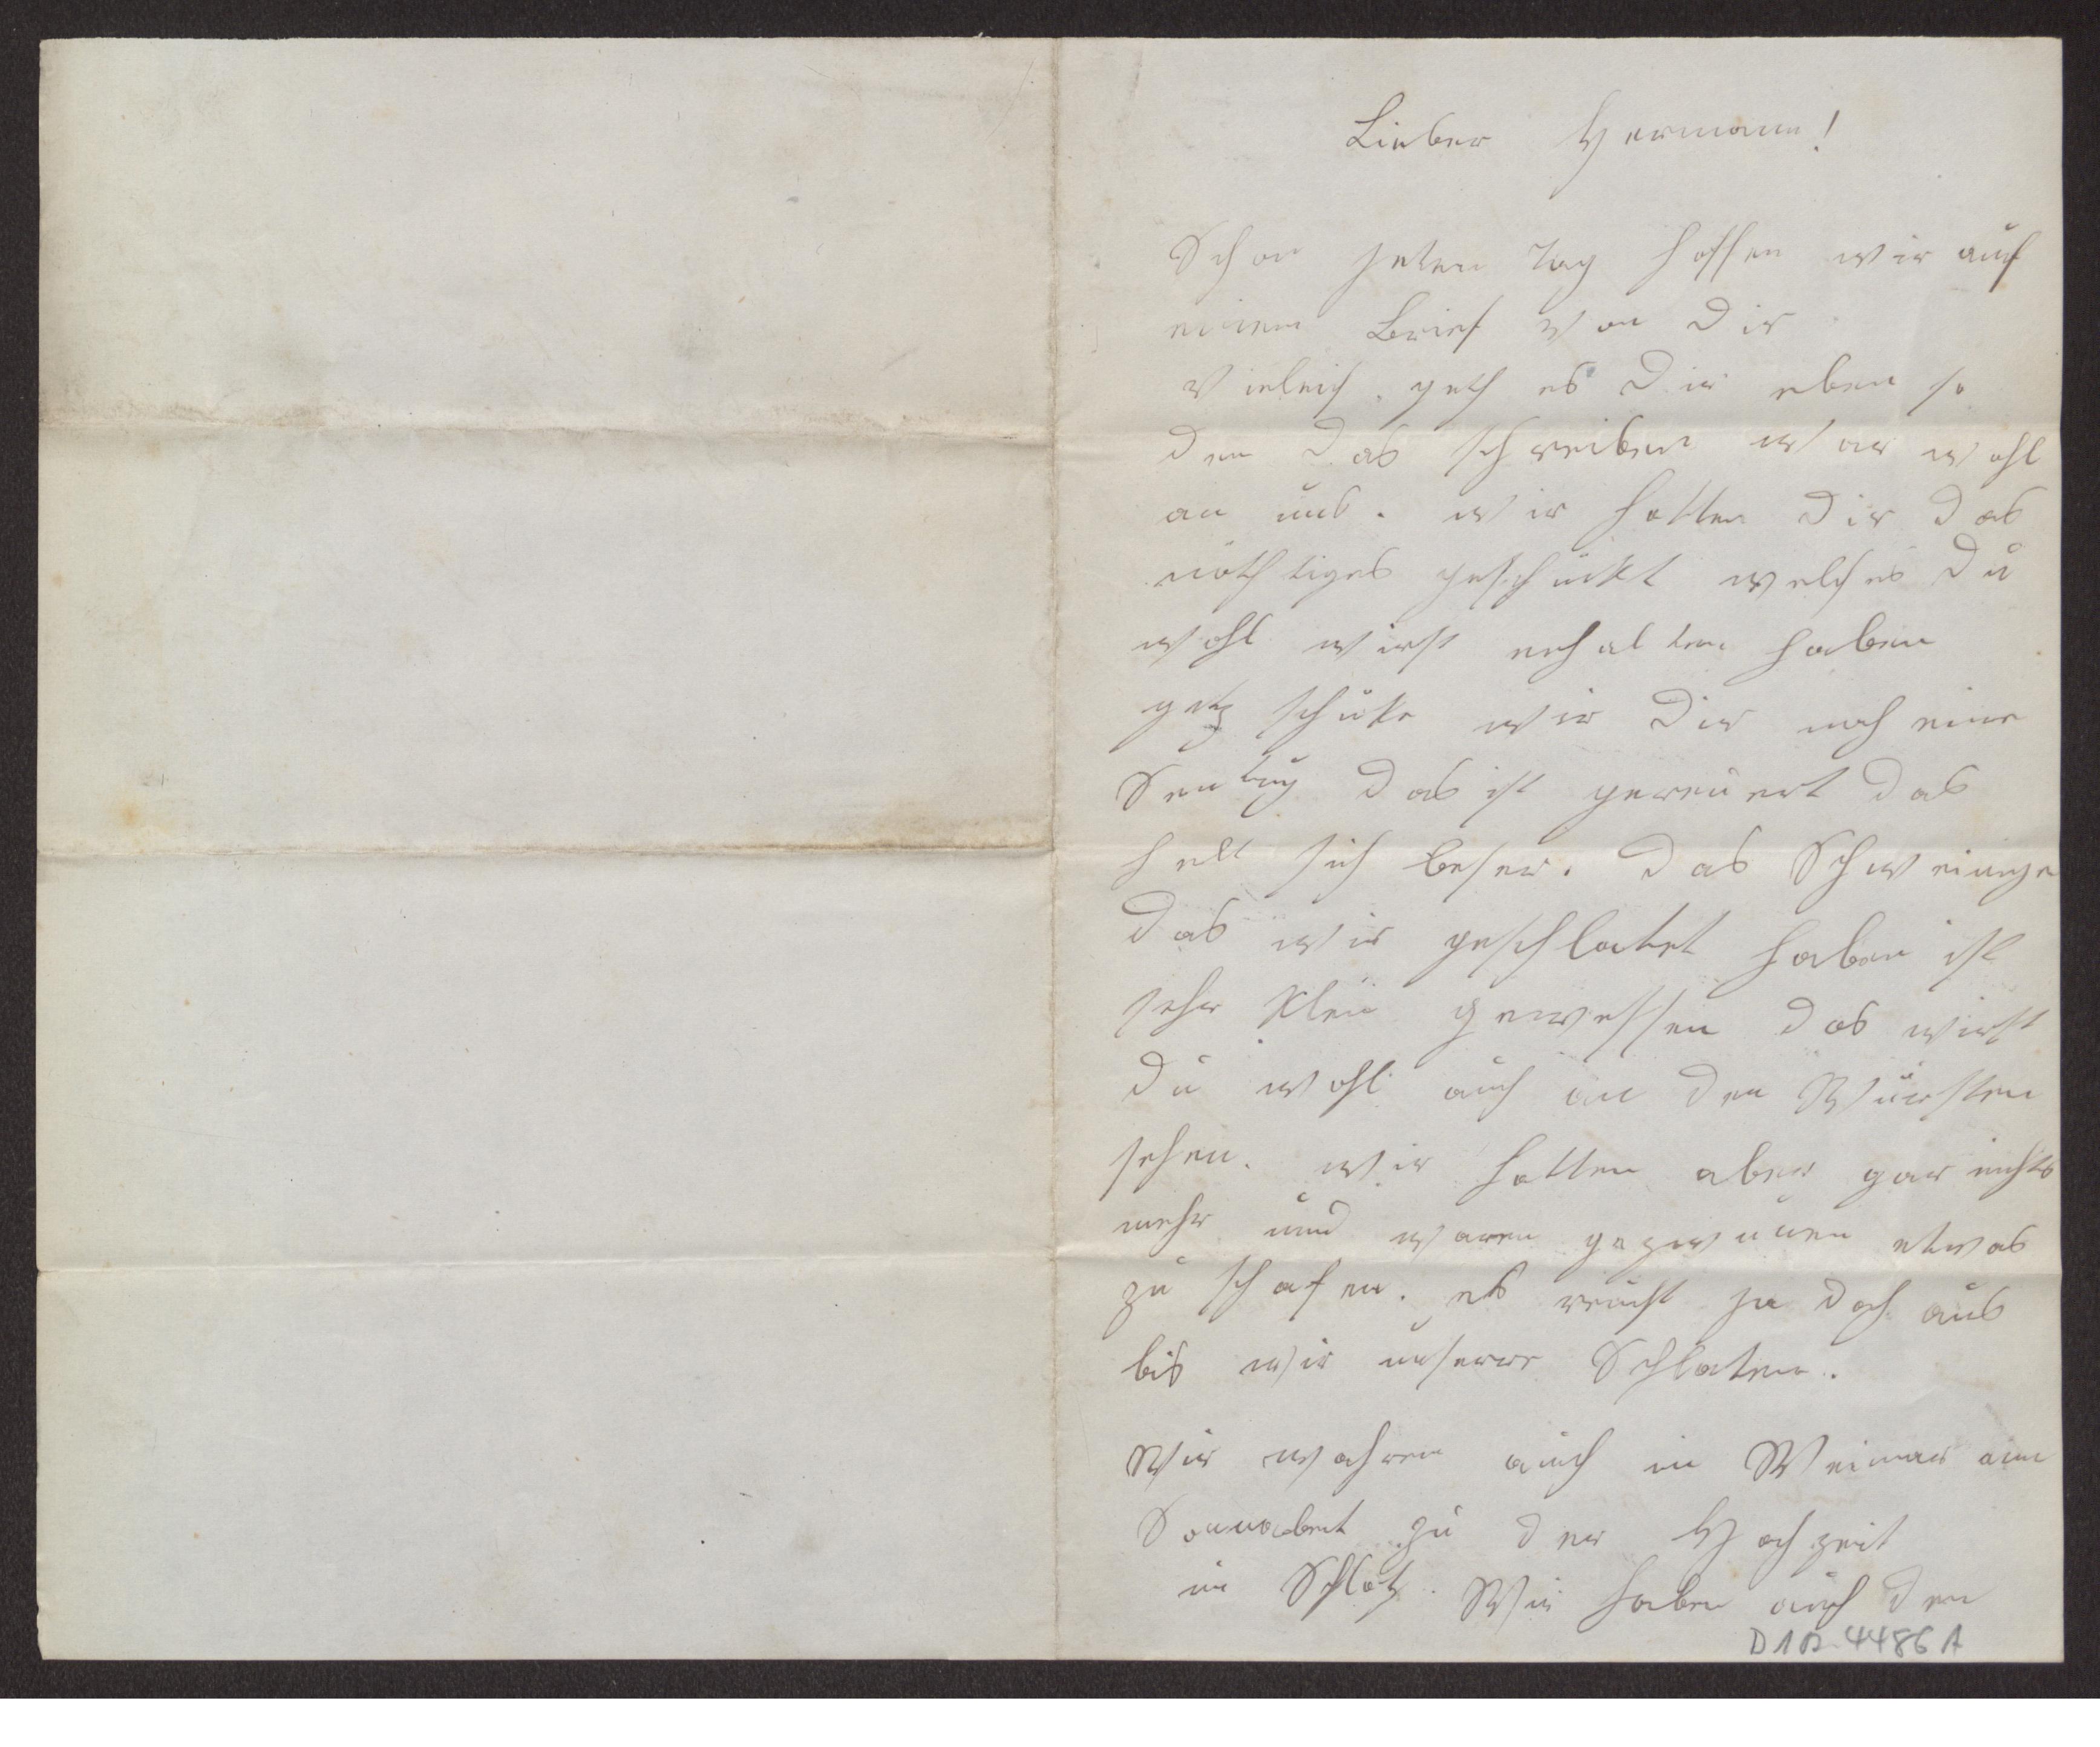 Lieber Hermann!
Schon jeten Tag hoffen wir auf
einen Brief von Dir
vieleich geth es Dir eben so
den das schreiben war wohl
an uns. wir hatten Dir das
nöthiges geschückt welches Du
wohl wirst erhalten haben
getz schüke wir Dir noch eine
Sentug das ist gereuert das
helt sich beser. das Schweinge
das wir geschlatet haben ist
sehr klein gewessen das wirst
Du wohl auch an den Würsten
sehen. wir hatten aber gar nichts
mehr und waren gezwunen etwas
zu schafen. es reicht ja doch aus
bis wir unserre Schlaten.
Wir wahren auch in Weimar am
Sonnabent zu der Hochzeit
im Schlotz. Wir haben auch den
D1R 4486 A